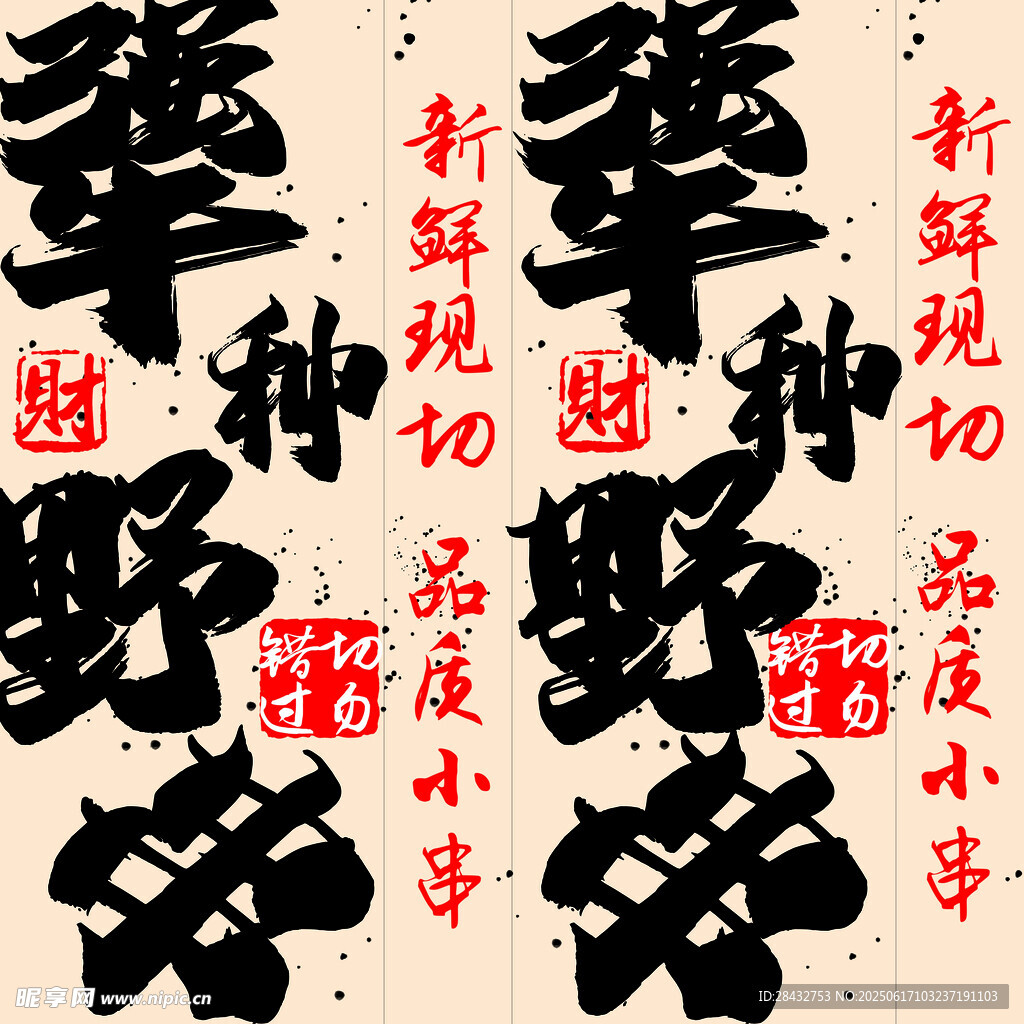 犟种野串
財
切勿
错过
新鲜现切
品质小串
犟种野串
財
切勿
错过
新鲜现切
品质小串
昵享网 www.nipic.cn
ID:28432753 NO:20250617103237191103